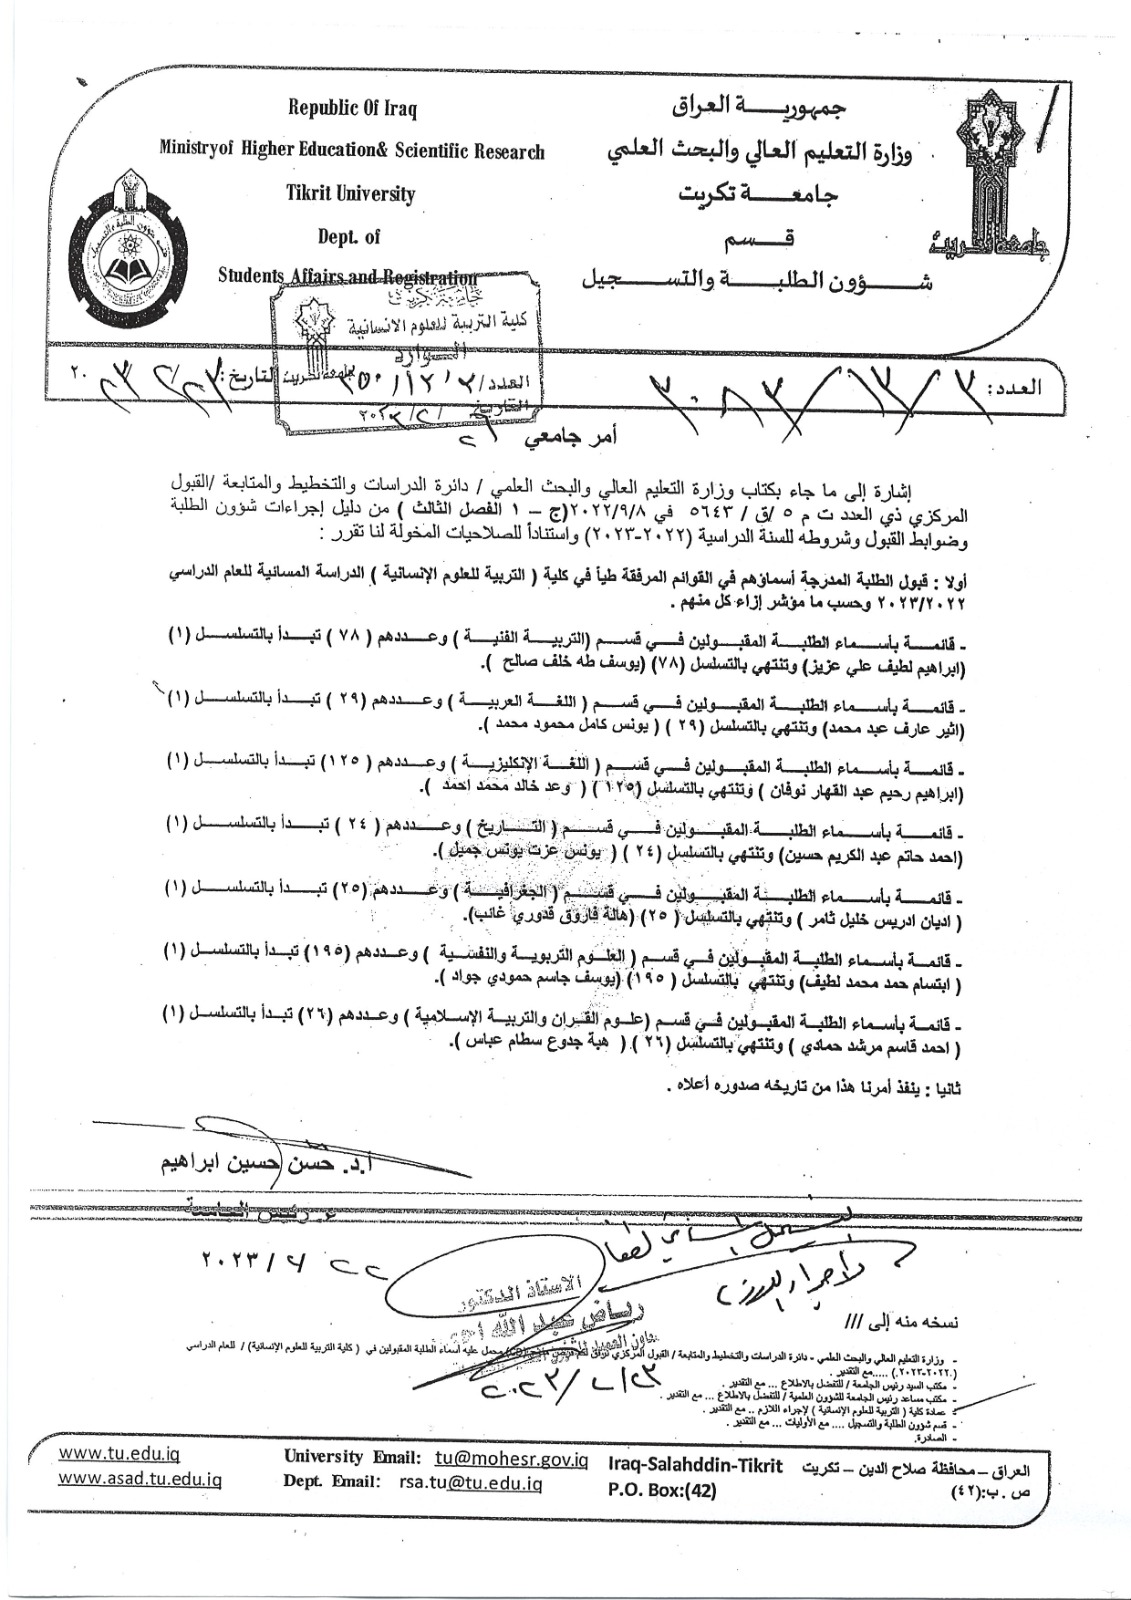 Republic Of Iraq
Ministryof Higher Education& Scientific Research
Tikrit University
Dept. of
Students Affairs and Registration
جمهورية العراق
وزارة التعليم العالي والبحث العلمي
جامعة تكريت
قسم
شؤون الطلبة والتسجيل
جامعة تكريت
جامعة تكريت
كلية التربية للعلوم الانسانية
الواردة
العدد/
التاريخ
العدد: ٣٠٨٣/١٣/٣
التاريخ: ٢٣/٢/٢٠٢٣
أمر جامعي
إشارة إلى ما جاء بكتاب وزارة التعليم العالي والبحث العلمي / دائرة الدراسات والتخطيط والمتابعة /القبول
المركزي ذي العدد ت م ٥ /ق / ٥٦٤٣ في ٢٠٢٢/٩/٨(ج – ١ الفصل الثالث ) من دليل إجراءات شؤون الطلبة
وضوابط القبول وشروطه للسنة الدراسية (٢٠٢٢-٢٠٢٣) واستناداً للصلاحيات المخولة لنا تقرر :
أولا : قبول الطلبة المدرجة أسماؤهم في القوائم المرفقة طياً في كلية ( التربية للعلوم الإنسانية ) الدراسة المسائية للعام الدراسي
٢٠٢٣/٢٠٢٢ وحسب ما مؤشر إزاء كل منهم .
- قائمة بأسماء الطلبة المقبولين في قسم (التربية الفنية ) وعددهم ( ٧٨ ) تبدأ بالتسلسل (١)
(ابراهيم لطيف علي عزيز) وتنتهي بالتسلسل (٧٨) (يوسف طه خلف صالح ).
- قائمة بأسماء الطلبة المقبولين في قسم ( اللغة العربية ) وعددهم (٢٩ ) تبدأ بالتسلسل (١)
(اثير عارف عبد محمد) وتنتهي بالتسلسل (٢٩ ) ( يونس كامل محمود محمد ).
- قائمة بأسماء الطلبة المقبولين في قسم ( اللغة الإنكليزية ) وعددهم ( ١٢٥) تبدأ بالتسلسل (١)
(ابراهيم رحيم عبد القهار نوفان ) وتنتهي بالتسلسل (١٢٥ ) ( وعد خالد محمد احمد ).
- قائمة بأسماء الطلبة المقبولين في قسم ( التاريخ ) وعددهم ( ٢٤ ) تبدأ بالتسلسل (١)
(احمد حاتم عبد الكريم حسين) وتنتهي بالتسلسل (٢٤ ) ( يونس عزت يونس جميل ).
- قائمة بأسماء الطلبة المقبولين في قسم ( الجغرافية ) وعددهم (٢٥) تبدأ بالتسلسل (١)
( اديان ادريس خليل ثامر ) وتنتهي بالتسلسل ( ٢٥) (هالة فاروق قدوري غائب).
- قائمة بأسماء الطلبة المقبولين في قسم ( العلوم التربوية والنفسية ) وعددهم (١٩٥) تبدأ بالتسلسل (١)
( ابتسام حمد محمد لطيف) وتنتهي بالتسلسل ( ١٩٥) (يوسف جاسم حمودي جواد ).
- قائمة بأسماء الطلبة المقبولين في قسم (علوم القران والتربية الإسلامية ) وعددهم (٢٦) تبدأ بالتسلسل (١)
( احمد قاسم مرشد حمادي ) وتنتهي بالتسلسل (٢٦ ) ( هبة جدوع سطام عباس ).
ثانيا : ينفذ أمرنا هذا من تاريخه صدوره أعلاه .
أ.د. حسن حسين ابراهيم
ع. رئيس الجامعة
٢٠٢٣/٢/٢٢
الاستاذ الدكتور
رياض عبد الله
٢٠٢٣/٢/٢٣
نسخه منه إلى ///
- وزارة التعليم العالي والبحث العلمي - دائرة الدراسات والتخطيط والمتابعة / القبول المركزي محمل عليه أسماء الطلبة المقبولين في ( كلية التربية للعلوم الإنسانية) / للعام الدراسي
(٢٠٢٢-٢٠٢٣) .....مع التقدير .
- مكتب السيد رئيس الجامعة / للتفضل بالاطلاع ... مع التقدير .
- مكتب مساعد رئيس الجامعة للشؤون العلمية / للتفضل بالاطلاع ... مع التقدير .
- عمادة كلية ( التربية للعلوم الإنسانية ) لإجراء اللازم .. مع التقدير .
- قسم شؤون الطلبة والتسجيل .... مع الأوليات ... مع التقدير .
- الصادرة.
www.tu.edu.iq
www.asad.tu.edu.iq
University Email: tu@mohesr.gov.iq
Dept. Email: rsa.tu@tu.edu.iq
Iraq-Salahddin-Tikrit
P.O. Box:(42)
العراق – محافظة صلاح الدين – تكريت
ص . ب:(٤٢)